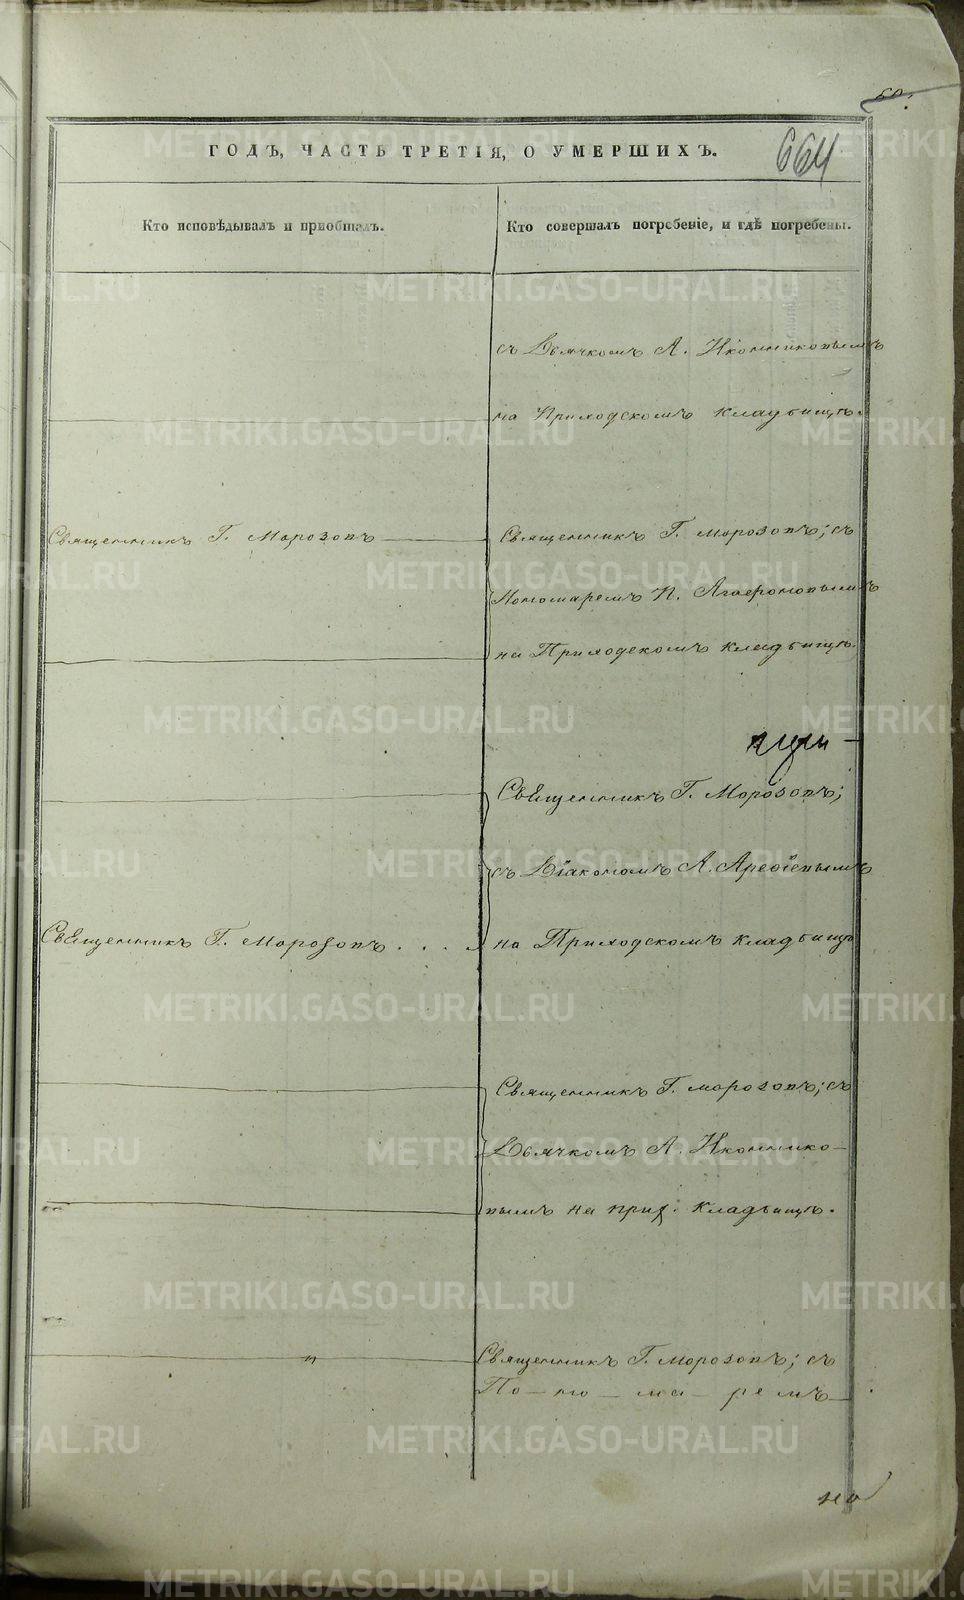 664
ГОДЪ, ЧАСТЬ ТРЕТІЯ, О УМЕРШИХЪ.
Кто исповѣдывалъ и пріобщалъ.
Кто совершалъ погребеніе, и гдѣ погребены.
съ Дьячкомъ А. Иконниковымъ
на Приходскомъ кладбищѣ.
Священникъ Г. Морозовъ
Священникъ Г. Морозовъ; съ
Пономаремъ П. Агафоновымъ
на Приходскомъ кладбищѣ.
Священникъ Г. Морозовъ;
съ Діакономъ А. Арефіевымъ
Священникъ Г. Морозовъ . . . .
на Приходскомъ кладбищѣ
Священникъ Г. Морозовъ; съ
Дьячкомъ А. Иконнико-
вымъ на прих. кладбищѣ.
Священникъ Г. Морозовъ; съ
По - но - ма - ремъ
METRIKI.GASO-URAL.RU